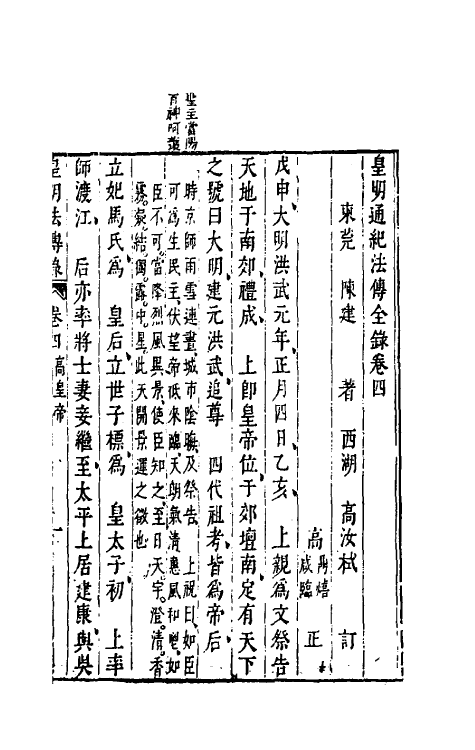 聖主當陽
百神呵護
皇明通紀法傳全錄卷四
東莞 陳建 著 西湖 高汝栻 訂
高 咸臨 正
戊申大明洪武元年正月四日乙亥 上親爲文祭告
天地于南郊禮成 上即皇帝位于郊壇南定有天下
之號曰大明建元洪武追尊 四代祖考皆爲帝后
時京師雨雪連晝城市陰曀及祭告 上祝曰如臣
可爲生民主伏望帝祇來臨天朗氣清惠風和暢如
臣不可當降烈風異景使臣知之至日天宇澄清香
霧凝結獨露中星此天開景運之徵也
立妃馬氏爲 皇后立世子標爲 皇太子初 上率
師渡江 后亦率將士妻妾繼至太平上居建康與吳
皇明法傳錄 卷四 高皇帝